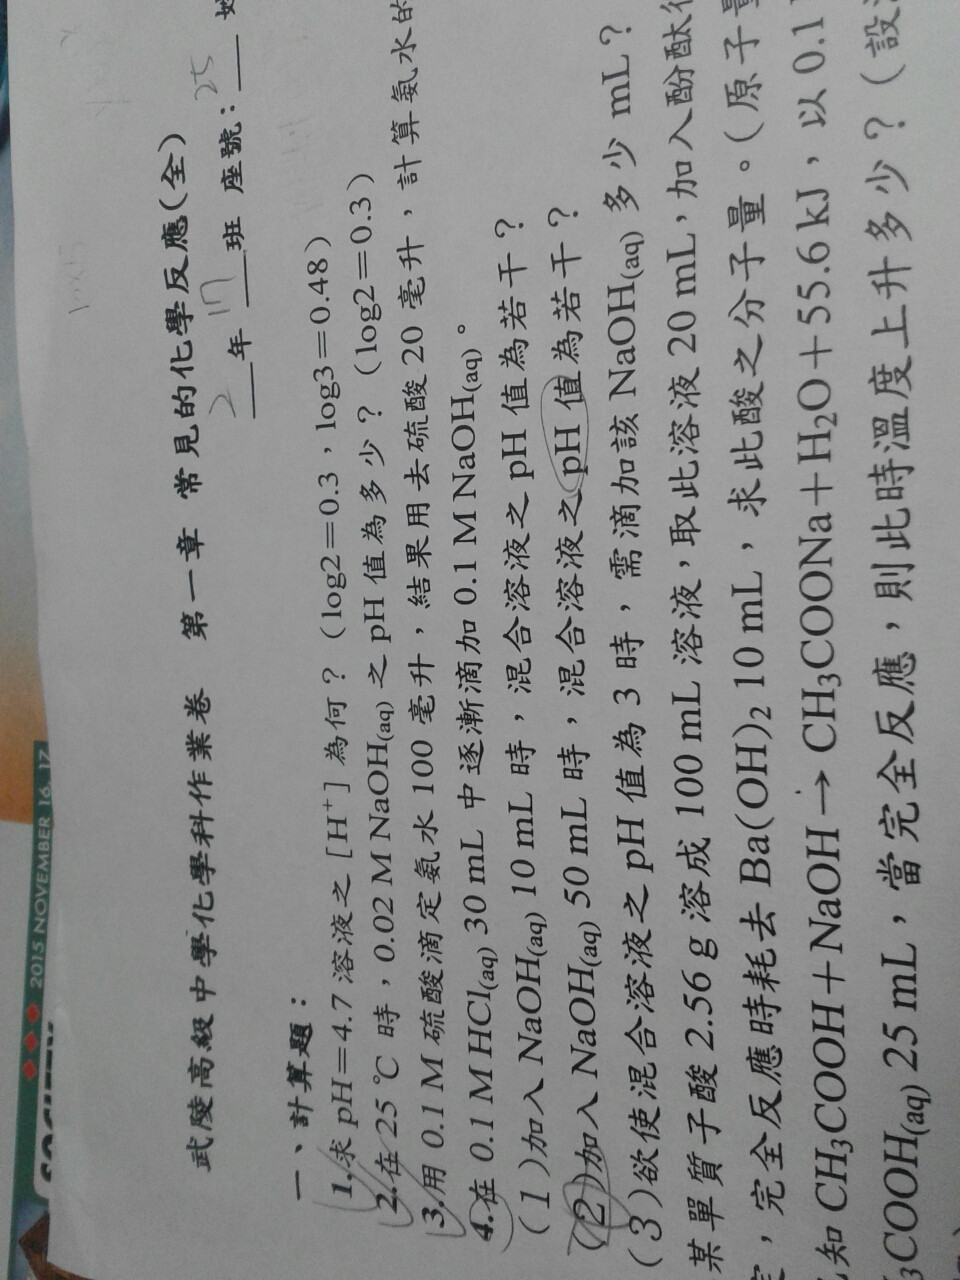 2015 NOVEMBER 16.17
SOCIETY
武陵高級中學化學科作業卷 第一章 常見的化學反應(全)
2 年 17 班 座號：25
一、計算題：
1.求 pH=4.7 溶液之 [H⁺] 為何？(log2=0.3，log3=0.48)
2.在 25 ℃ 時，0.02 M NaOH(aq) 之 pH 值為多少？(log2=0.3)
3.用 0.1 M 硫酸滴定氨水 100 毫升，結果用去硫酸 20 毫升，計算氨水的
4.在 0.1 M HCl(aq) 30 mL 中逐漸滴加 0.1 M NaOH(aq)。
(1)加入 NaOH(aq) 10 mL 時，混合溶液之 pH 值為若干？
(2)加入 NaOH(aq) 50 mL 時，混合溶液之 pH 值為若干？
(3)欲使混合溶液之 pH 值為 3 時，需滴加該 NaOH(aq) 多少 mL？
某單質子酸 2.56 g 溶成 100 mL 溶液，取此溶液 20 mL，加入酚酞
，完全反應時耗去 Ba(OH)₂ 10 mL，求此酸之分子量。(原子量
知 CH₃COOH+NaOH→CH₃COONa+H₂O+55.6 kJ，以 0.1
₃COOH(aq) 25 mL，當完全反應，則此時溫度上升多少？(設